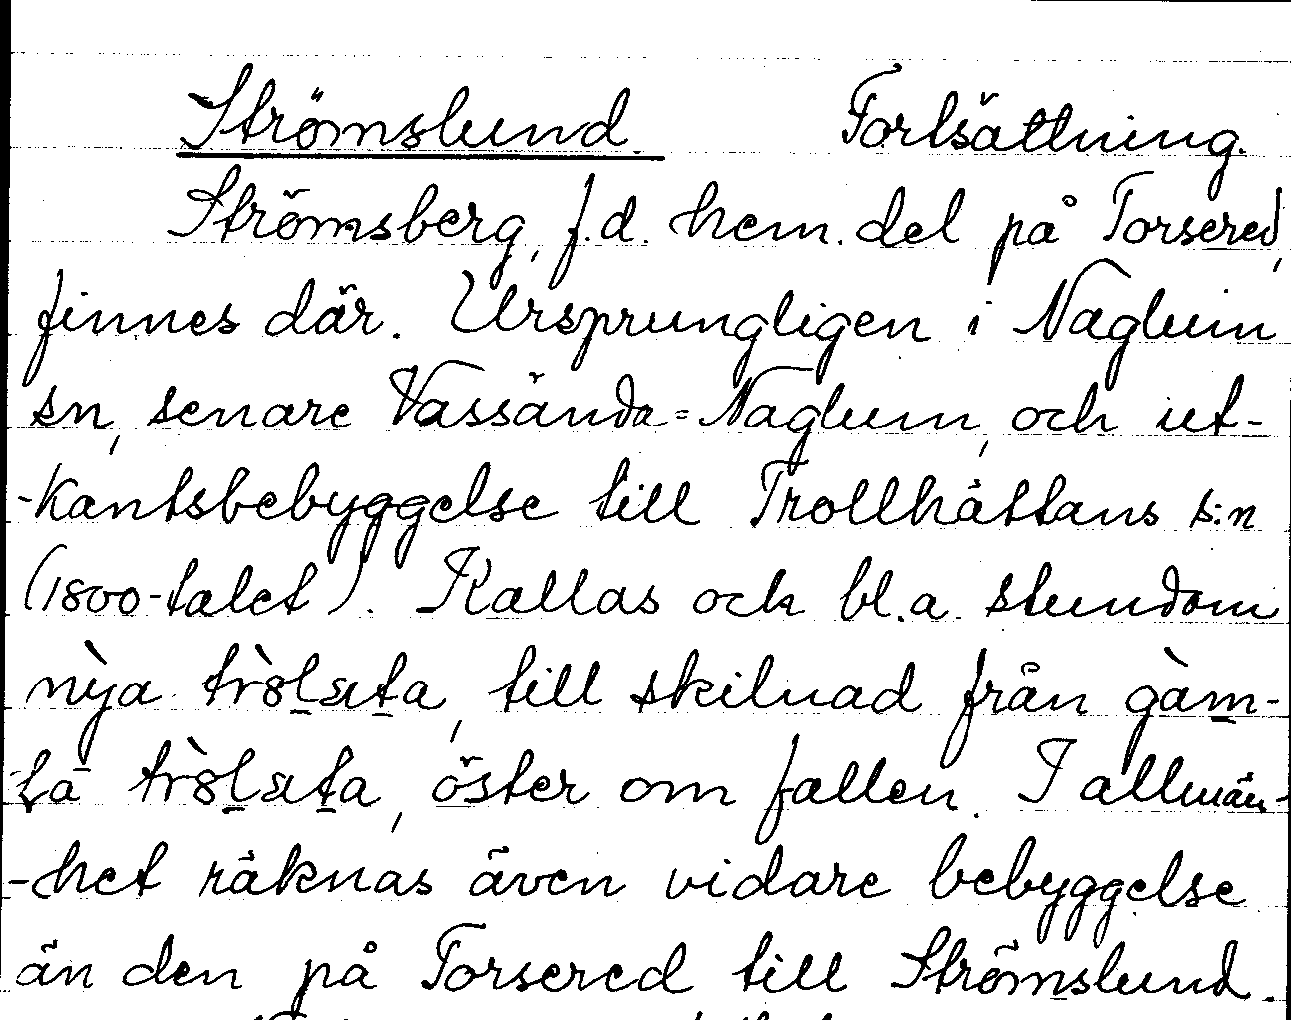 Strömslund. Fortsättning.
Strömsberg, f.d. hem. del på Torsered,
finnes där. Ursprungligen i Naglum
sn, senare Vassända-Naglum, och ut-
-kantsbebyggelse till Trollhättans s:n
(1800-talet). Kallas ock bl.a. stundom
nya , till skilnad från
, öster om fallen. I allmän-
-het räknas även vidare bebyggelse
än den på Torsered till Strömslund.